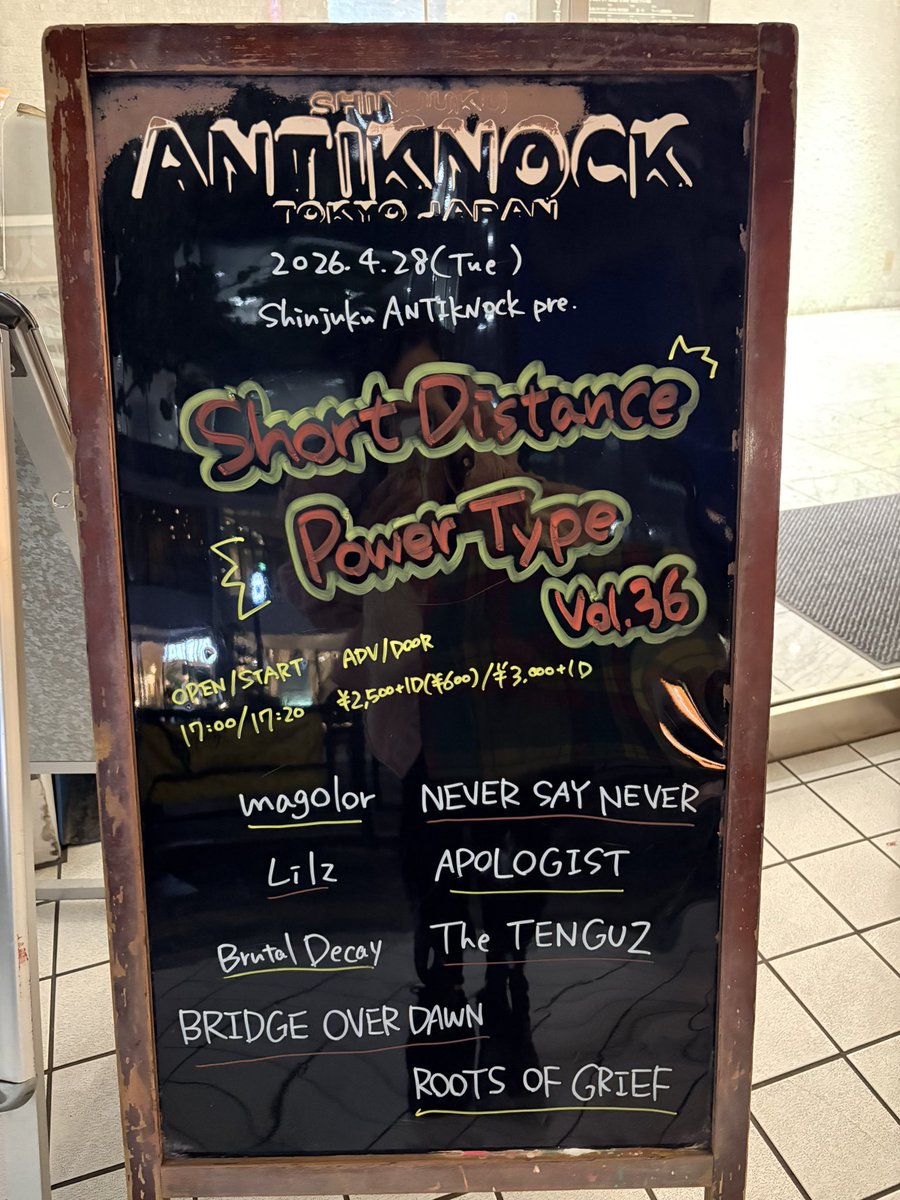 SHINJUKU
ANTIKNOCK
TOKYO JAPAN
2026.4.28(Tue)
Shinjuku ANTIKNOCK pre.
Short Distance
Power Type
Vol.36
OPEN/START
17:00/17:20
ADV/DOOR
¥2,500+1D(¥600)/¥3.000+1D
magolor
NEVER SAY NEVER
Lilz
APOLOGIST
Brutal Decay
The TENGUZ
BRIDGE OVER DAWN
ROOTS OF GRIEF